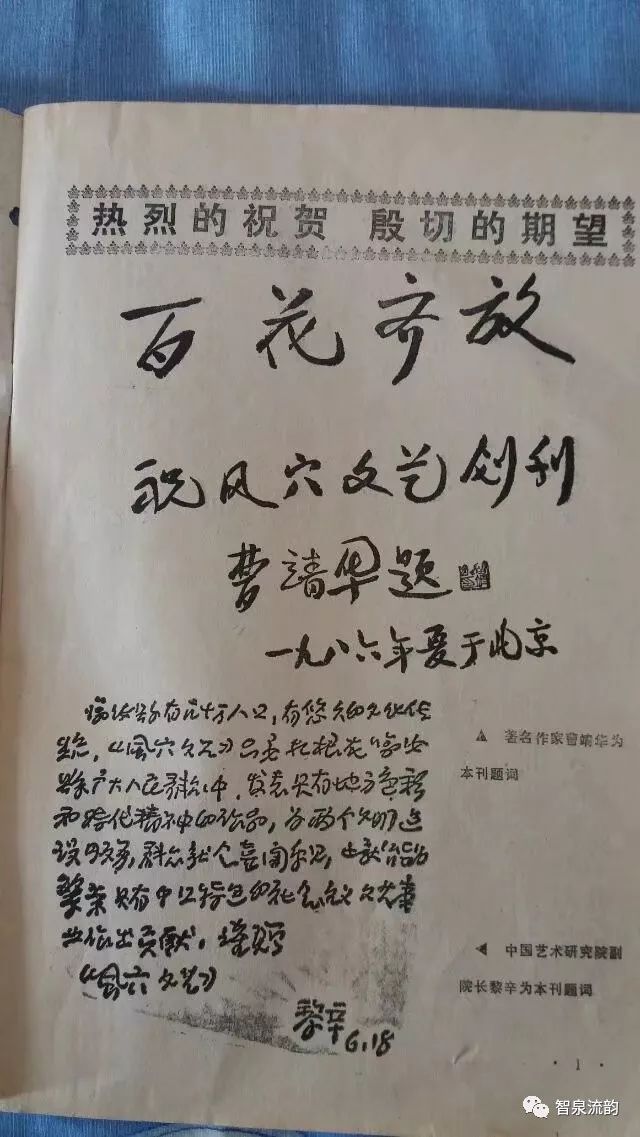 热烈的祝贺 殷切的期望
百花齐放
祝风穴文艺创刊
曹靖华题
一九八六年夏于北京
临汝县有几十万人口，有悠久的文化传
统，《风穴文艺》只要扎根在临汝
县广大人民群众中，发表具有地方色彩
和时代精神的作品，为两个文明建
设服务，群众就会喜闻乐见，也就会为
繁荣具有中国特色的社会主义文艺事
业作出贡献。谨赠
《风穴文艺》
黎辛
6.18
▲ 著名作家曹靖华为
本刊题词
◀ 中国艺术研究院副
院长黎辛为本刊题词
·1·
智泉流韵